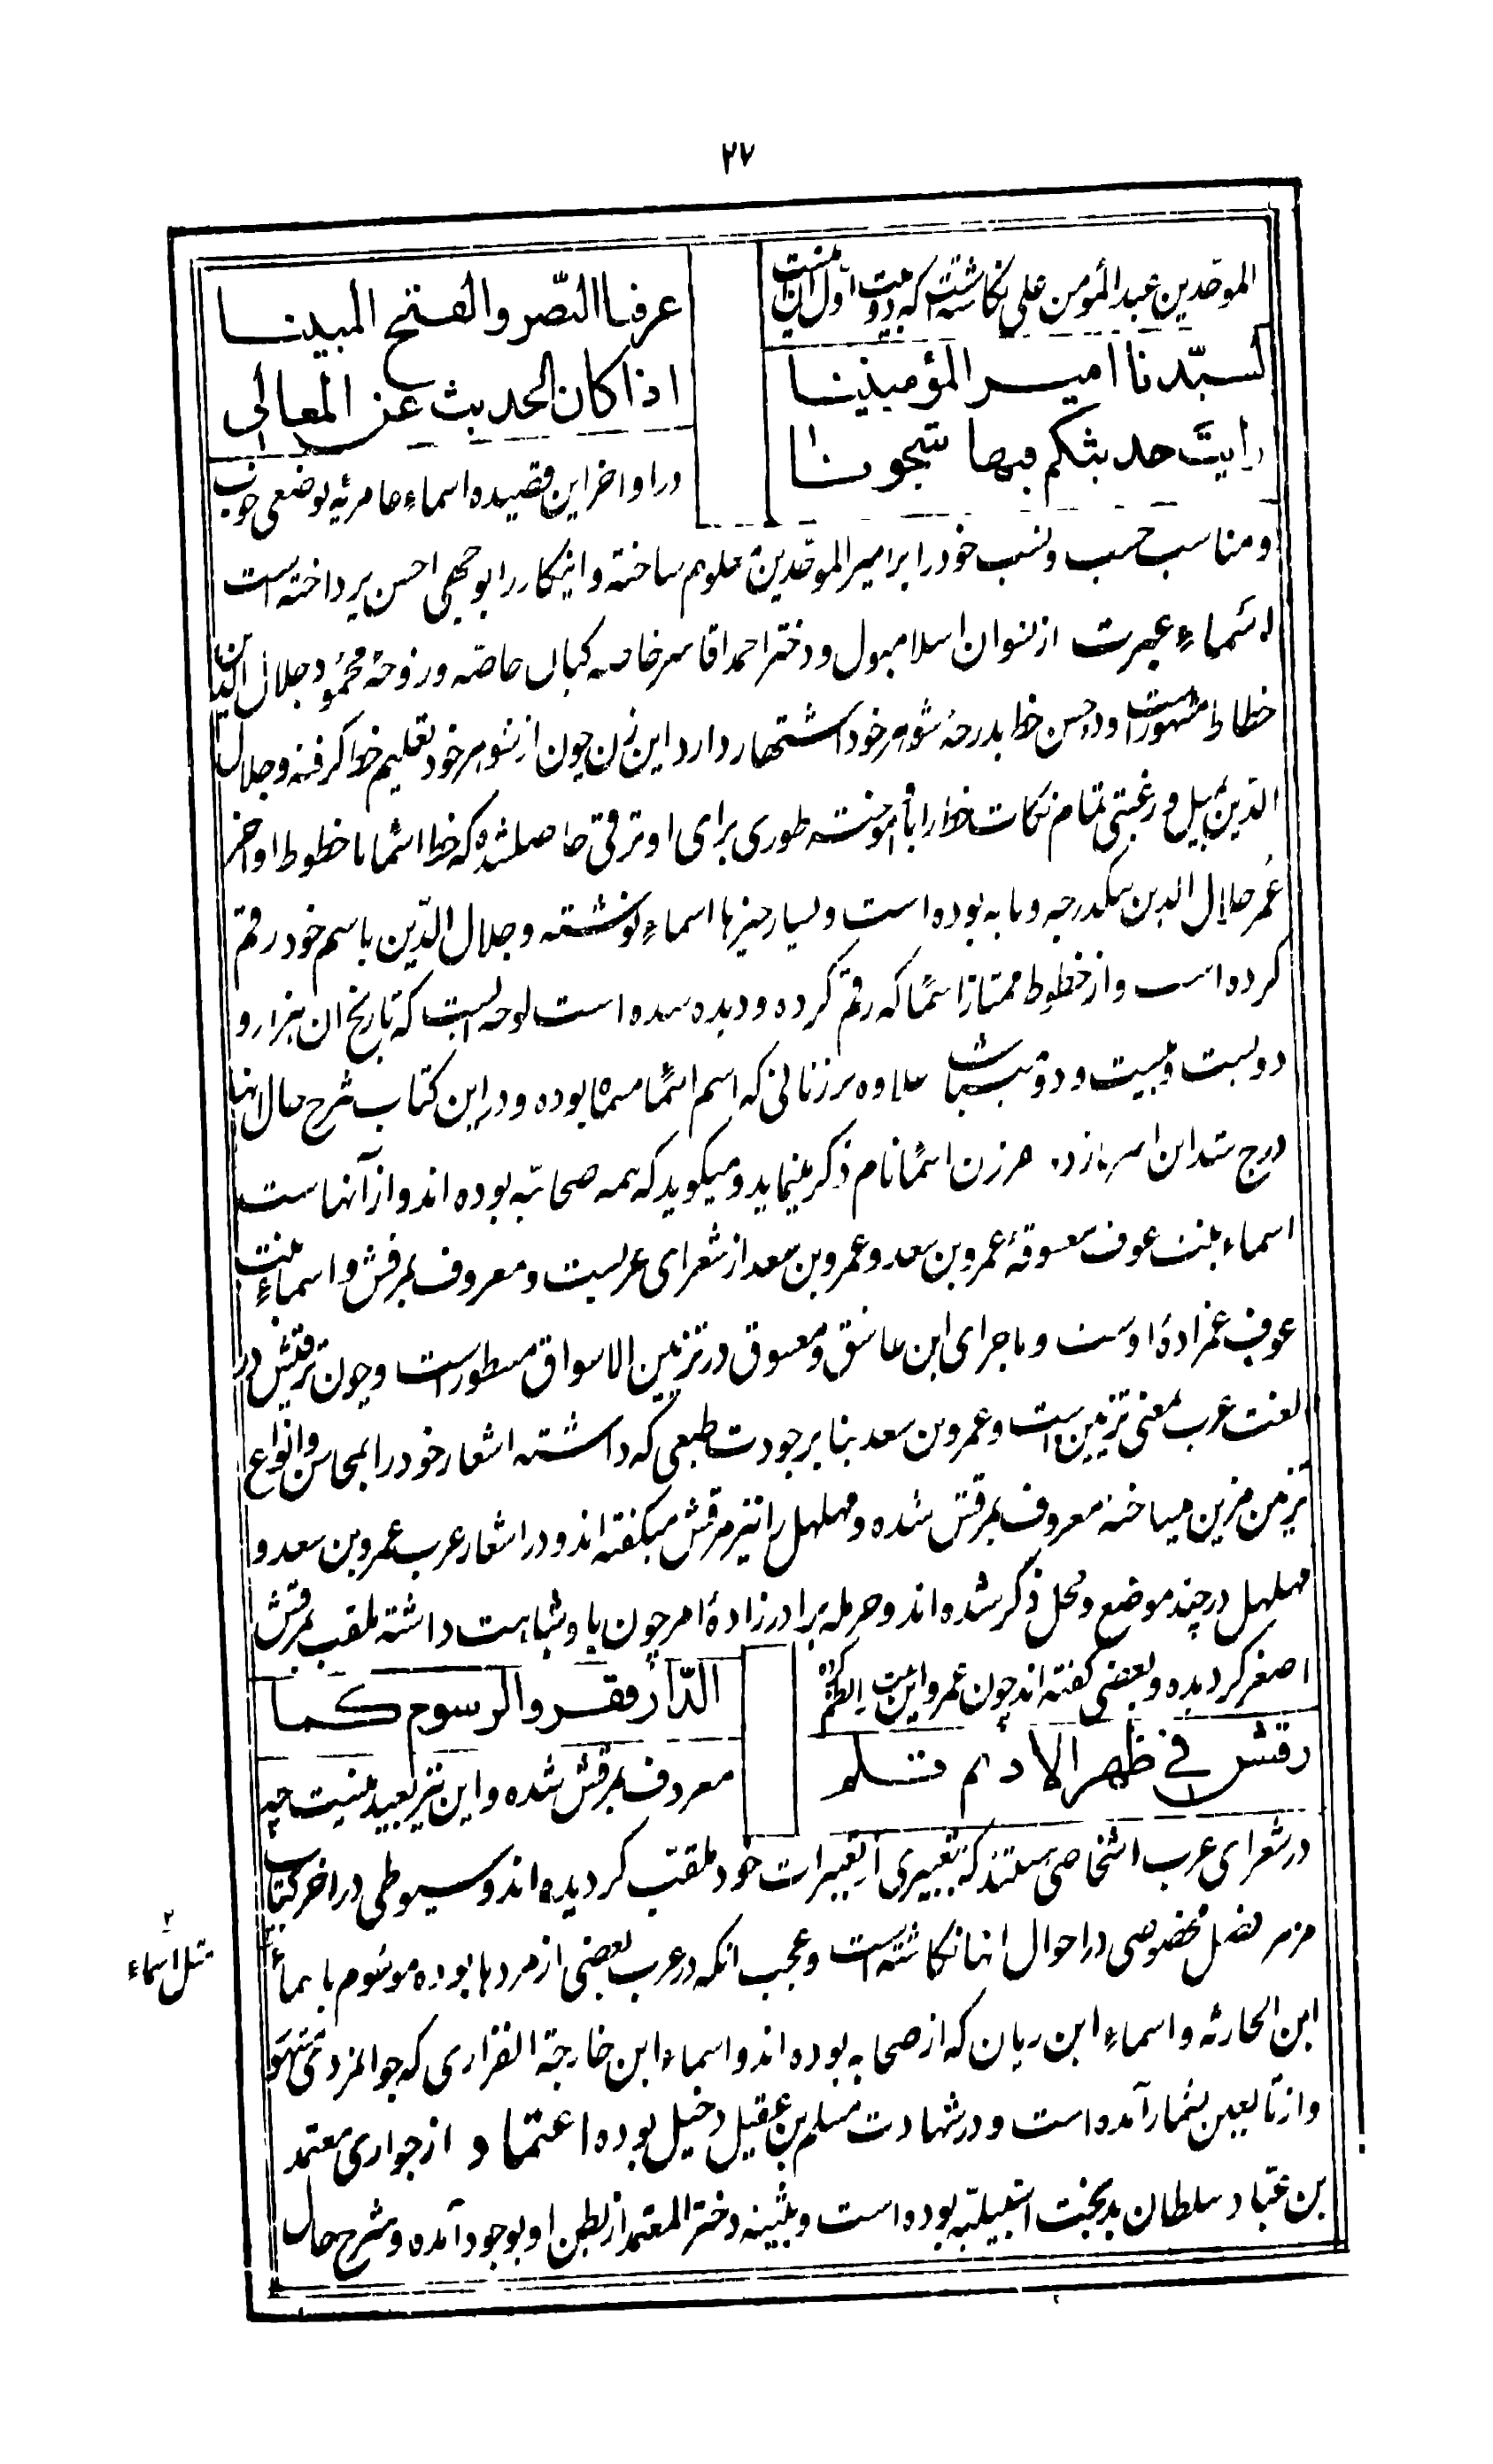 ۲۷
الموحّدین عبدالمؤمن علی نگاشته است که دو بیت اوّل آن این است
عرفنا النّصر والفتح المبینا
لسیّدنا امیر المؤمنینا
اذا کان الحدیث عن المعالی
رایتَ حدیثکم فیها شجونا
در اواخر این قصیده اسماء عامریّه بوضعی خوب
و مناسب حسب و نسب خود را بر امیر الموحّدین معلوم ساخته و اینکار را بوجهی احسن پرداخته است
اسْماءِ عبرت از نسوان اسلامبول و دختر احمد اقا سرخاصه کیان خاصّه و زوجهٔ محمُود جلال الدّین
خطاط مشهور است و در حسن خط بدرجهٔ شوهر خود اشتهار دارد این زن چون از شوهر خود تعلیم خط گرفته و جلال
الدّین بمیل و رغبتی تمام نکات خط را بأو آموخته طوری برای او ترقی حاصلشده که خط اسما با خطوط اواخر
عُمر جلال الدین یکدرجه و مایه بوده است و بسیار چیزها اسماءِ نوشته و جلال الدّین باسم خود رقم
کرده است و از خطوط ممتاز اسمًا که رقم کرده و دیده شده است لوحه ایست که تاریخ ان هزار و
دویست و بیست و دو میباشد علاوه بر زنانی که اسم اسمًا مسمّا بوده و در این کتاب شرح حال انها
درج شد ابن اثیر یازده هرزن اسمًا نام ذکر مینماید و میگوید که همه صحابیّه بوده اند و از آنهاست
اسماء بنت عوف معسوقهٔ عمرو بن سعد و عمرو بن سعد از شعرای عربست و معروف بمرقش و اسماءِ بنت
عوف عمزادهٔ اوست و ماجرای این عاشق و معسوق در تزیین الاسواق مسطور است و چون ترقیش در
لغت عرب بمعنی تزیین است و عمرو بن سعد بنا بر جودت طبعی که داشته اشعار خود را بمحاسن و انواع
تزیین مزین میساخته معروف بمرقش شده و مهلهل را نیز مرقش میگفته اند و در اشعار عرب عمرو بن سعد و
مهلهل در چند موضع و محل ذکر شده اند و حرمله برادرزادهٔ امر چون باو شباهت داشته ملقب بمرقش
اصغر گردیده و بعضی گفته اند چون عمرو این بیت را نظم کرده
الدّار قفر والرسوم کما
رقّش فی ظهر الادیم قلم
معروف بمرقش شده و این نیز بعید نیست چه
در شعرای عرب اشخاصی هستند که بتعبیری از تعبیرات خود ملقّب گردیده اند و سیوطی در اخر کتاب
مزهر فصل مخصوصی در احوال انها نگاشته است و عجب انکه در عرب بعضی از مردها بوده موسُوم باسمأ
مثل اسماء
ابن الحارثه و اسماءِ ابن ربان که از صحابه بوده اند و اسماء ابن خارجة الفزاری که جوانمردی مشهور
و از تابعین بشمار آمده است و در شهادت مسلم بن عقیل دخیل بوده اعتماد از جواری معتمد
بن عبّاد سلطان بدبخت اشبیلیّه بوده است و بثینه دختر المعتمد از بطن او بوجود آمده و شرح حال